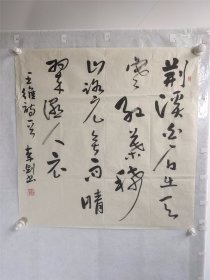 荆溪白石出天
寒红叶稀
山路元无雨晴
翠湿人衣
王维诗一首